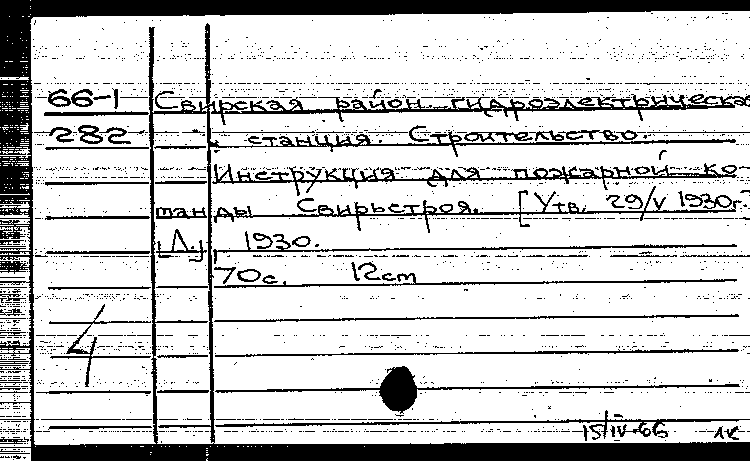 66-1 Свирская район. гидроэлектрическая
282 станция. Строительство.
Инструкция для пожарной ко-
манды Свирьстроя. [Утв. 29/V 1930г.]
[Л.], 1930.
70с. 12см
4
15/IV-66